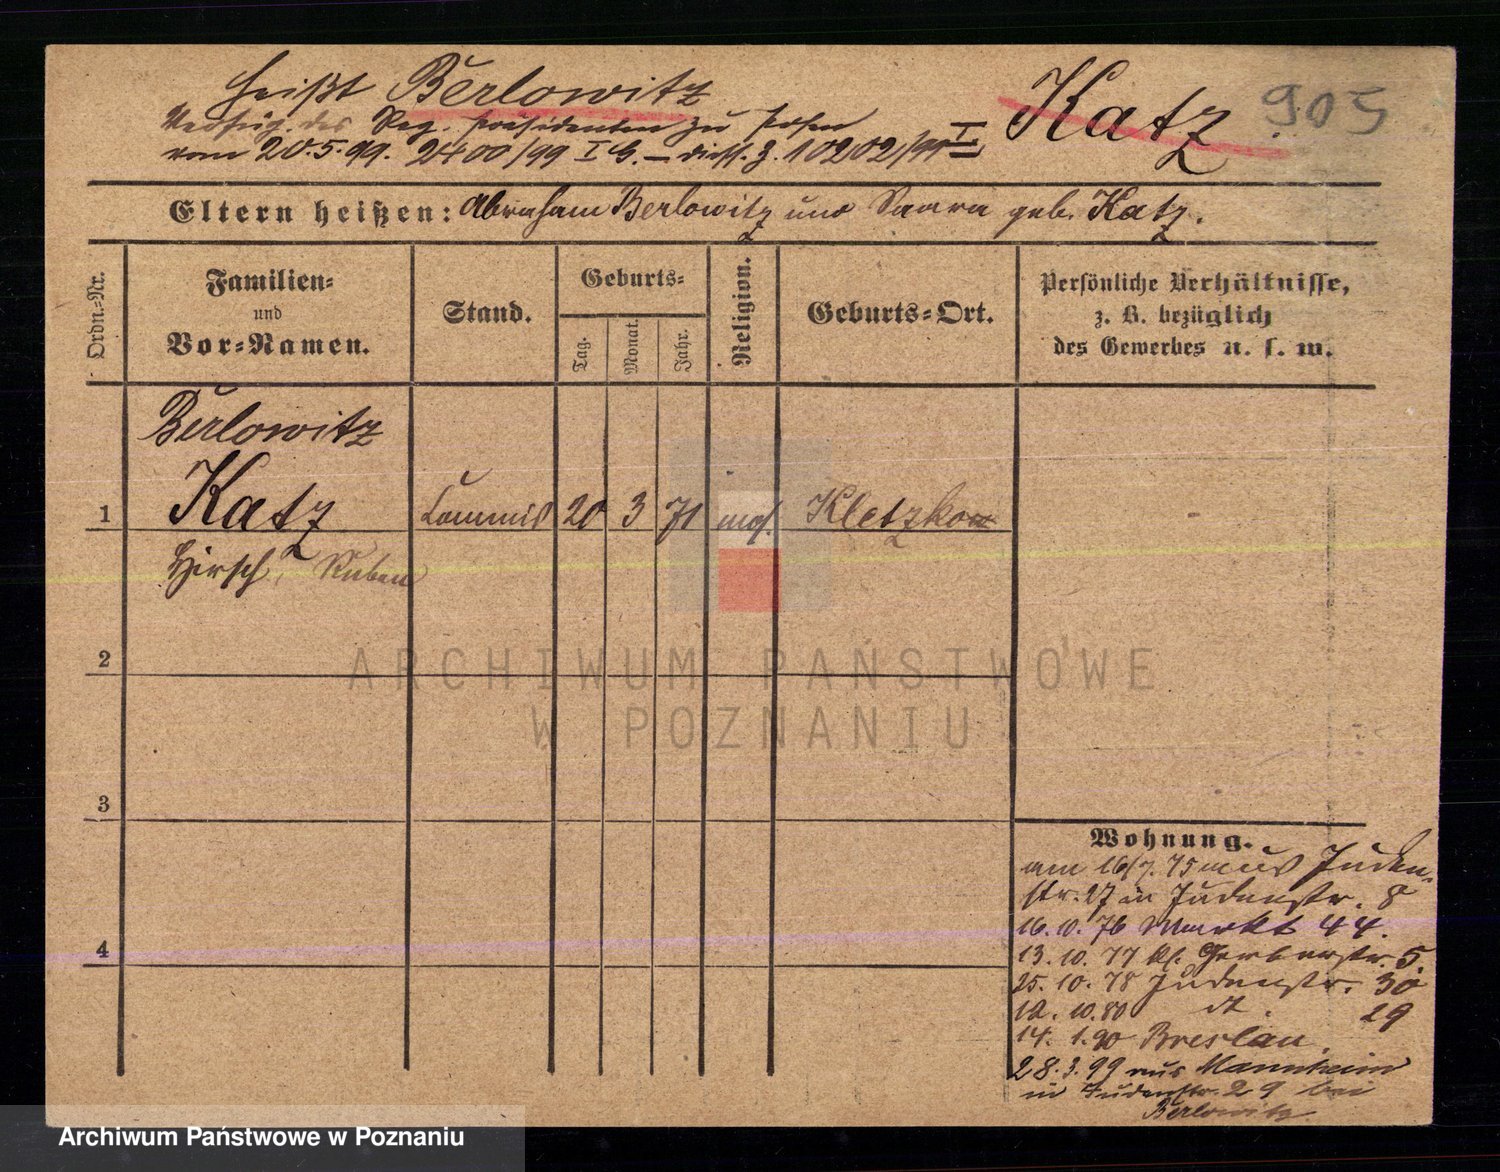 heißt Berlowitz
Katz
905
Verfüg. des Reg. Präsidenten zu Posen
vom 20.5.99. 2400/99 I C. – diess. J. 10202/99 I
Eltern heißen: Abraham Berlowitz und Saara geb. Katz.
Ordn.-Nr.
Familien- und Vor-Namen.
Stand.
Geburts-
Tag.
Monat.
Jahr.
Religion.
Geburts-Ort.
Persönliche Verhältnisse, z. B. bezüglich des Gewerbes u. s. w.
Berlowitz
1 Katz Commis 20 3 71 mos. Kletzko
Hirsch, Ruben
2
3
4
Wohnung.
am 16/7. 75 aus Juden-
str. 27 in Judenstr. 8
16. 10. 76 Markt 44.
13. 10. 77 kl. Gerberstr. 5.
25. 10. 78 Judenstr. 30
12. 10. 80 dt. 29
14. 1. 90 Breslau.
28. 3. 99 aus Mannheim
in Judenstr. 29 bei
Berlowitz
ARCHIWUM PAŃSTWOWE
W POZNANIU
Archiwum Państwowe w Poznaniu